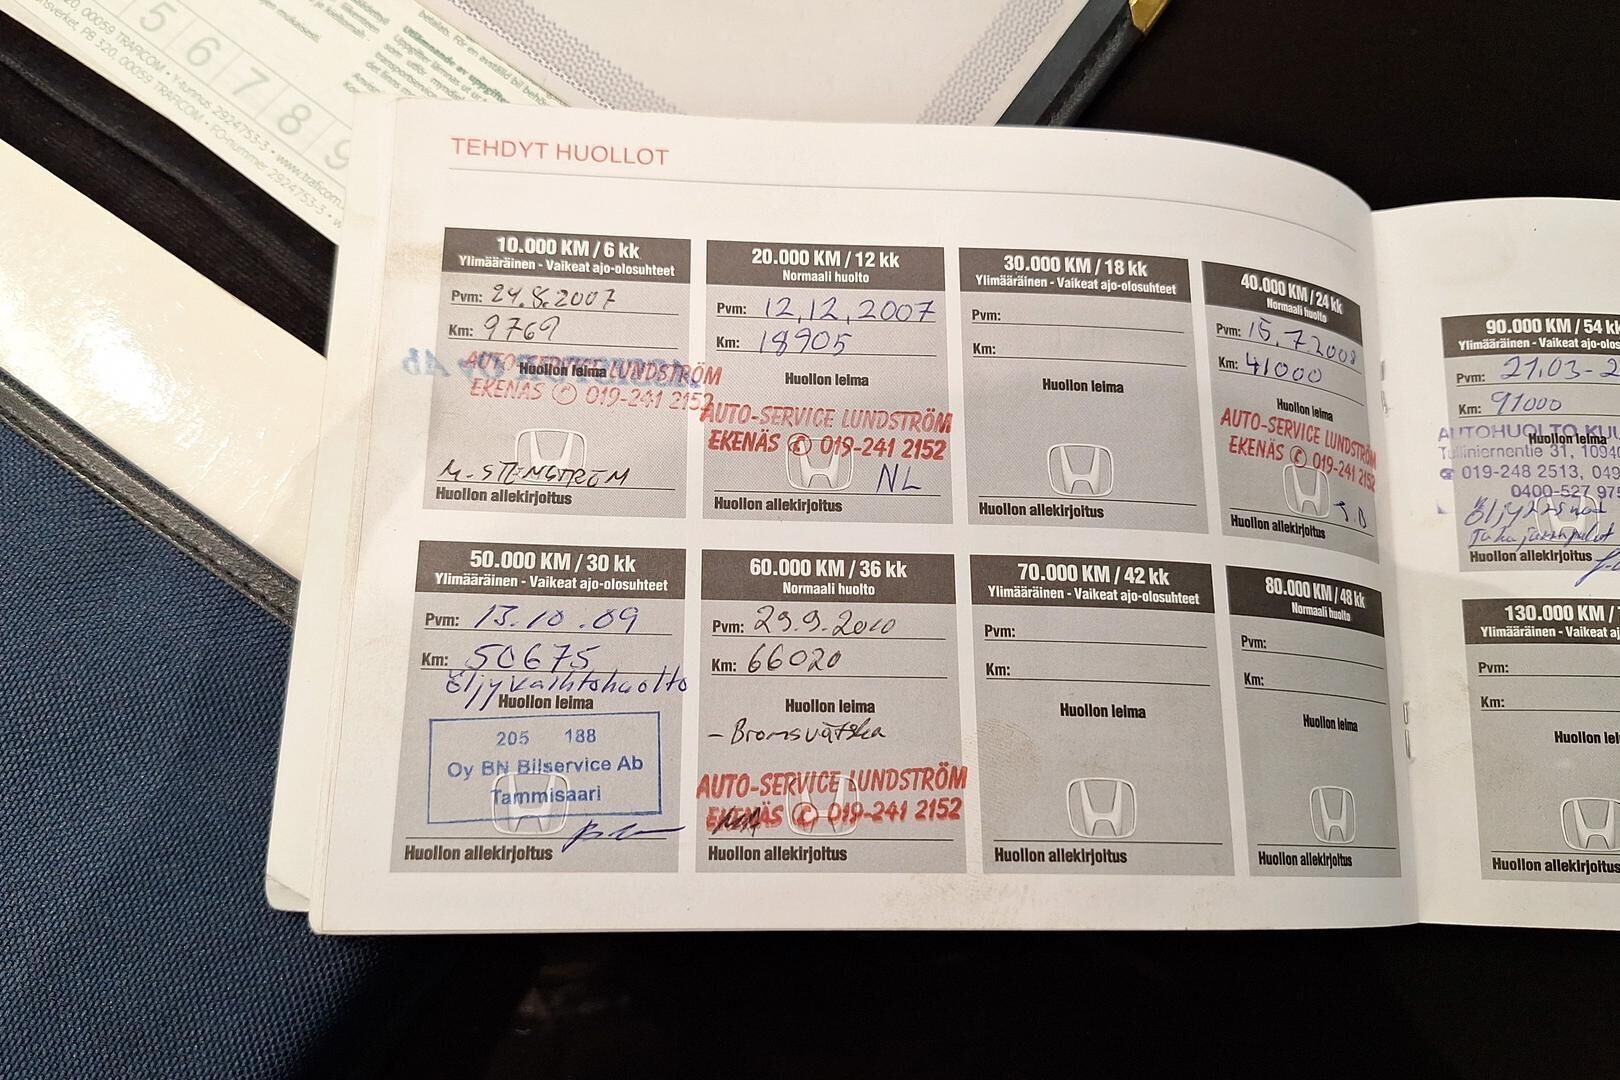 5 6 7 8 9
00059 TRAFICOM • Y-tunnus 2924753-3 • www.traficom.
PB 320, 00059 TRAFICOM • FO-nummer 2924753-3 • w
TEHDYT HUOLLOT
10.000 KM / 6 kk
Ylimääräinen - Vaikeat ajo-olosuhteet
Pvm: 24.8.2007
Km: 9769
Huollon leima
AUTO-SERVICE LUNDSTRÖM
EKENÄS ✆ 019-241 2152
M. STENSTRÖM
Huollon allekirjoitus
20.000 KM / 12 kk
Normaali huolto
Pvm: 12.12.2007
Km: 18905
Huollon leima
AUTO-SERVICE LUNDSTRÖM
EKENÄS ✆ 019-241 2152
NL
Huollon allekirjoitus
30.000 KM / 18 kk
Ylimääräinen - Vaikeat ajo-olosuhteet
Pvm:
Km:
Huollon leima
Huollon allekirjoitus
40.000 KM / 24 kk
Normaali huolto
Pvm: 15.7.2008
Km: 41000
Huollon leima
AUTO-SERVICE LUNDSTRÖM
EKENÄS ✆ 019-241 2152
Huollon allekirjoitus
50.000 KM / 30 kk
Ylimääräinen - Vaikeat ajo-olosuhteet
Pvm: 13.10.09
Km: 50675
Öljyvaihtohuolto
Huollon leima
205 188
Oy BN Bilservice Ab
Tammisaari
Huollon allekirjoitus
60.000 KM / 36 kk
Normaali huolto
Pvm: 29.9.2010
Km: 66020
Huollon leima
- Bromsvätska
AUTO-SERVICE LUNDSTRÖM
EKENÄS ✆ 019-241 2152
Huollon allekirjoitus
70.000 KM / 42 kk
Ylimääräinen - Vaikeat ajo-olosuhteet
Pvm:
Km:
Huollon leima
Huollon allekirjoitus
80.000 KM / 48 kk
Normaali huolto
Pvm:
Km:
Huollon leima
Huollon allekirjoitus
90.000 KM / 54 kk
Ylimääräinen - Vaikeat ajo-olos
Pvm: 21.03-2
Km: 91000
Huollon leima
AUTOHUOLTO KUU
Tulliniementie 31, 1094
019-248 2513, 049
0400-527 975
Huollon allekirjoitus
130.000 KM /
Ylimääräinen - Vaikeat aj
Pvm:
Km:
Huollon lei
Huollon allekirjoitus